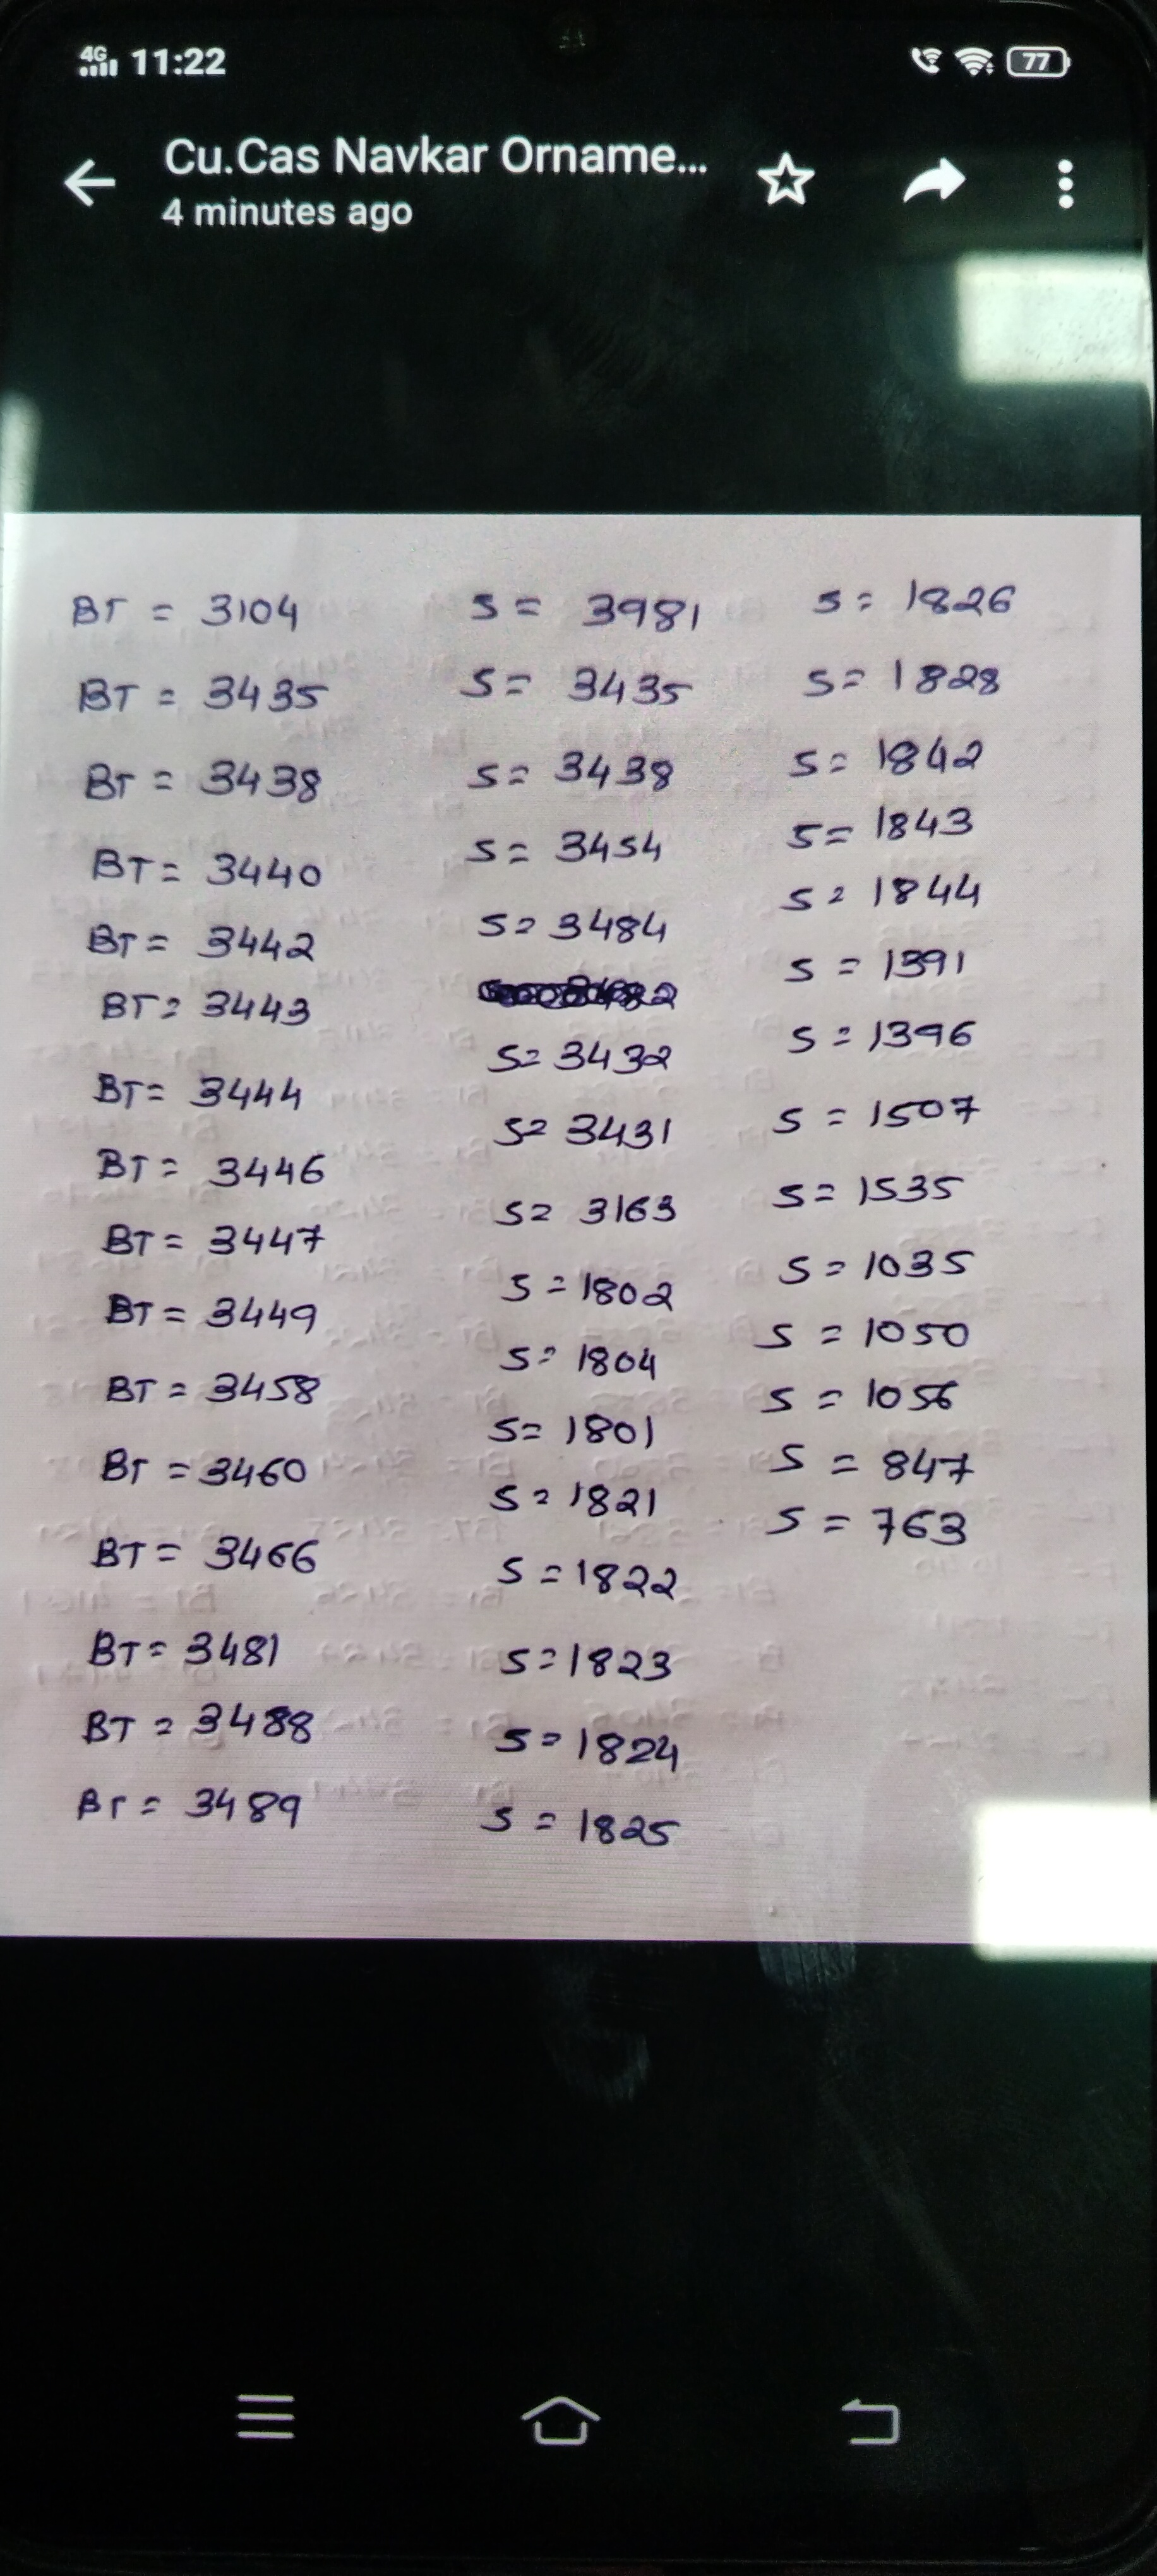 4G 11:22 77
Cu.Cas Navkar Orname...
4 minutes ago
BT = 3104
BT = 3435
BT = 3438
BT = 3440
BT = 3442
BT = 3443
BT = 3444
BT = 3446
BT = 3447
BT = 3449
BT = 3458
BT = 3460
BT = 3466
BT = 3481
BT = 3488
BT = 3489
S = 3981
S = 3435
S = 3438
S = 3454
S = 3484
S = 3432
S = 3431
S = 3163
S = 1802
S = 1804
S = 1801
S = 1821
S = 1822
S = 1823
S = 1824
S = 1825
S = 1826
S = 1828
S = 1842
S = 1843
S = 1844
S = 1391
S = 1396
S = 1507
S = 1535
S = 1035
S = 1050
S = 1056
S = 847
S = 763